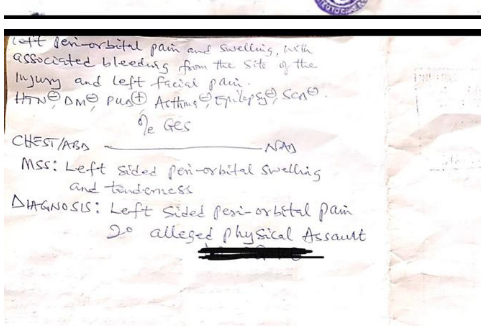 left peri-orbital pain and swelling, with
associated bleeding from the site of the
injury and left facial pain.
HTN⊖, DM⊖, PUD⊕ Asthma⊖, Epilepsy⊖, SCD⊖.
O/e GCS
CHEST/ABD ——— NAD
MSS: Left sided peri-orbital swelling
and tenderness
DIAGNOSIS: Left Sided peri-orbital pain
2° alleged physical Assault